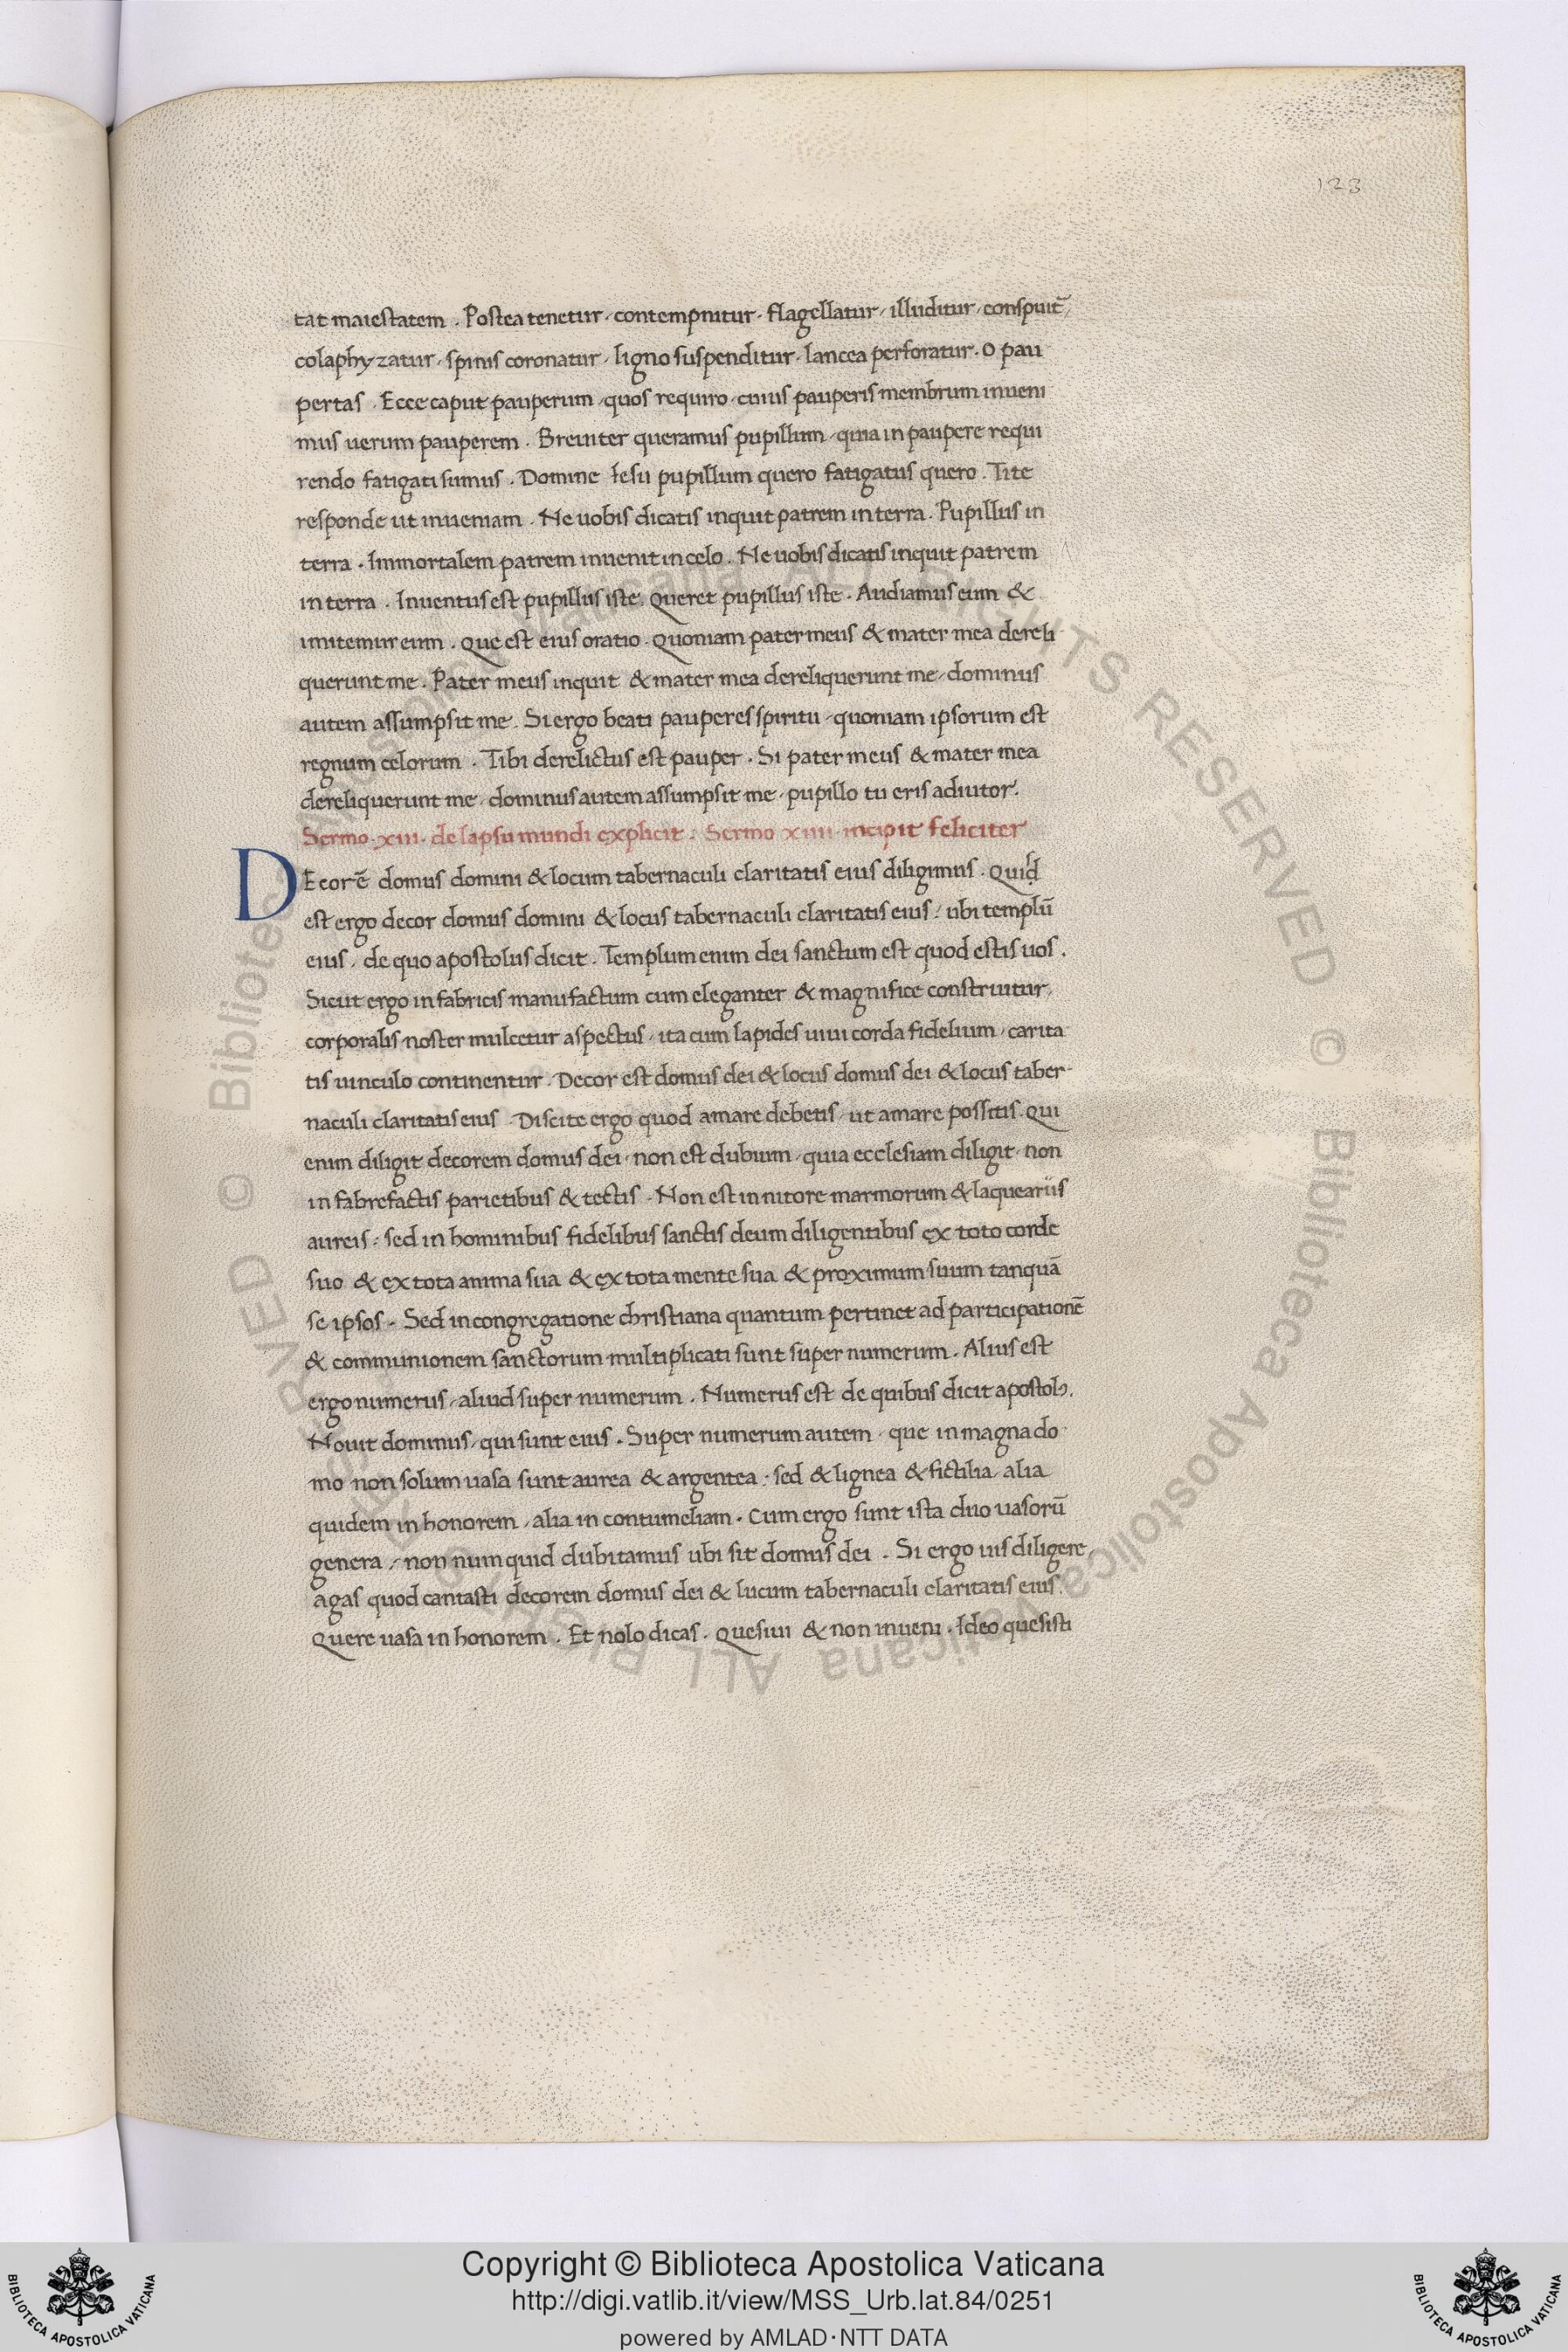 123
tat maiestatem . Postea tenetur, contempnitur, flagellatur, illuditur, conspuit̃,
colaphyzatur, spinis coronatur, ligno suspenditur, lancea perforatur. O pau
pertas . Ecce caput pauperum, quos requiro, cuius pauperis membrum inueni
mus uerum pauperem . Breuiter queramus pupillum, quia in paupere requi
rendo fatigati sumus . Domine Iesu pupillum quero fatigatus quero . Tite
responde ut inueniam . Ne uobis dicatis inquit patrem in terra. Pupillus in
terra . Immortalem patrem inuenit in celo . Ne uobis dicatis inquit patrem
in terra . Inuentus est pupillus iste. Queret pupillus iste . Audiamus eum &
imitemur eum . Que est eius oratio . Quoniam pater meus & mater mea dereli
querunt me . Pater meus inquit & mater mea dereliquerunt me, dominus
autem assumpsit me . Si ergo beati pauperes spiritu, quoniam ipsorum est
regnum celorum . Tibi derelictus est pauper . Si pater meus & mater mea
dereliquerunt me, dominus autem assumpsit me, pupillo tu eris adiutor.
Sermo . xiii . de lapsu mundi explicit . Sermo xiiii incipit feliciter
DEcorē domus domini & locum tabernaculi claritatis eius diligimus . Quid
est ergo decor domus domini & locus tabernaculi claritatis eius : ubi templū
eius, de quo apostolus dicit . Templum enim dei sanctum est quod estis uos .
Sicut ergo in fabricis manufactum cum eleganter & magnifice construitur,
corporalis noster mulcetur aspectus, ita cum lapides uiui corda fidelium, carita
tis uinculo continentur . Decor est domus dei & locus domus dei & locus taber-
naculi claritatis eius . Discite ergo quod amare debetis, ut amare possitis . Qui
enim diligit decorem domus dei, non est dubium, quia ecclesiam diligit, non
in fabrefactis parietibus & tectis . Non est in nitore marmorum & laquearijs
aureis : sed in hominibus fidelibus sanctis deum diligentibus ex toto corde
suo & ex tota anima sua & ex tota mente sua & proximum suum tanquā
se ipsos . Sed in congregatione christiana quantum pertinet ad participationē
& communionem sanctorum multiplicati sunt super numerum . Alius est
ergo numerus, aliud super numerum . Numerus est de quibus dicit apostolꝰ.
Nouit dominus, qui sunt eius . Super numerum autem, que in magna do
mo non solum uasa sunt aurea & argentea : sed & lignea & fictilia, alia
quidem in honorem, alia in contumeliam . Cum ergo sunt ista duo uasorū
genera, non numquid dubitamus ubi sit domus dei . Si ergo uis diligere,
agas quod cantasti decorem domus dei & lucum tabernaculi claritatis eius .
Quere uasa in honorem . Et nolo dicas . Quesiui & non inueni . Ideo quesisti
Copyright © Biblioteca Apostolica Vaticana
http://digi.vatlib.it/view/MSS_Urb.lat.84/0251
powered by AMLAD·NTT DATA